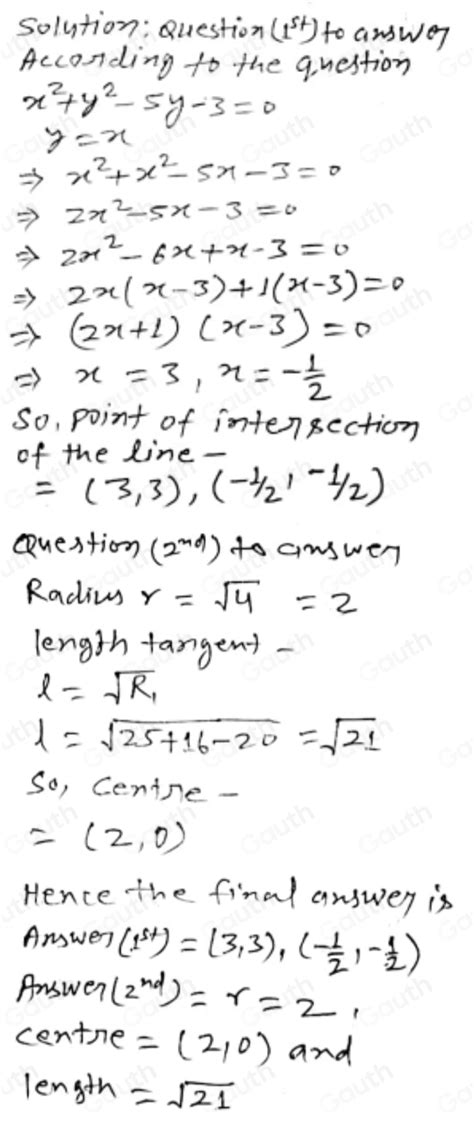 Solution: Question (1st) to answer
According to the question
x²+y²-5y-3=0
y=x
⇒ x²+x²-5x-3=0
⇒ 2x²-5x-3=0
⇒ 2x²-6x+x-3=0
⇒ 2x(x-3)+1(x-3)=0
⇒ (2x+1) (x-3)=0
⇒ x = 3, x = -1/2
So, point of intersection
of the line -
= (3,3), (-1/2, -1/2)
Question (2nd) to answer
Radius r = √4 = 2
length tangent -
l = √R₁
l = √25+16-20 = √21
So, Centre -
= (2,0)
Hence the final answer is
Answer (1st) = (3,3), (-1/2, -1/2)
Answer (2nd) = r = 2,
centre = (2,0) and
length = √21